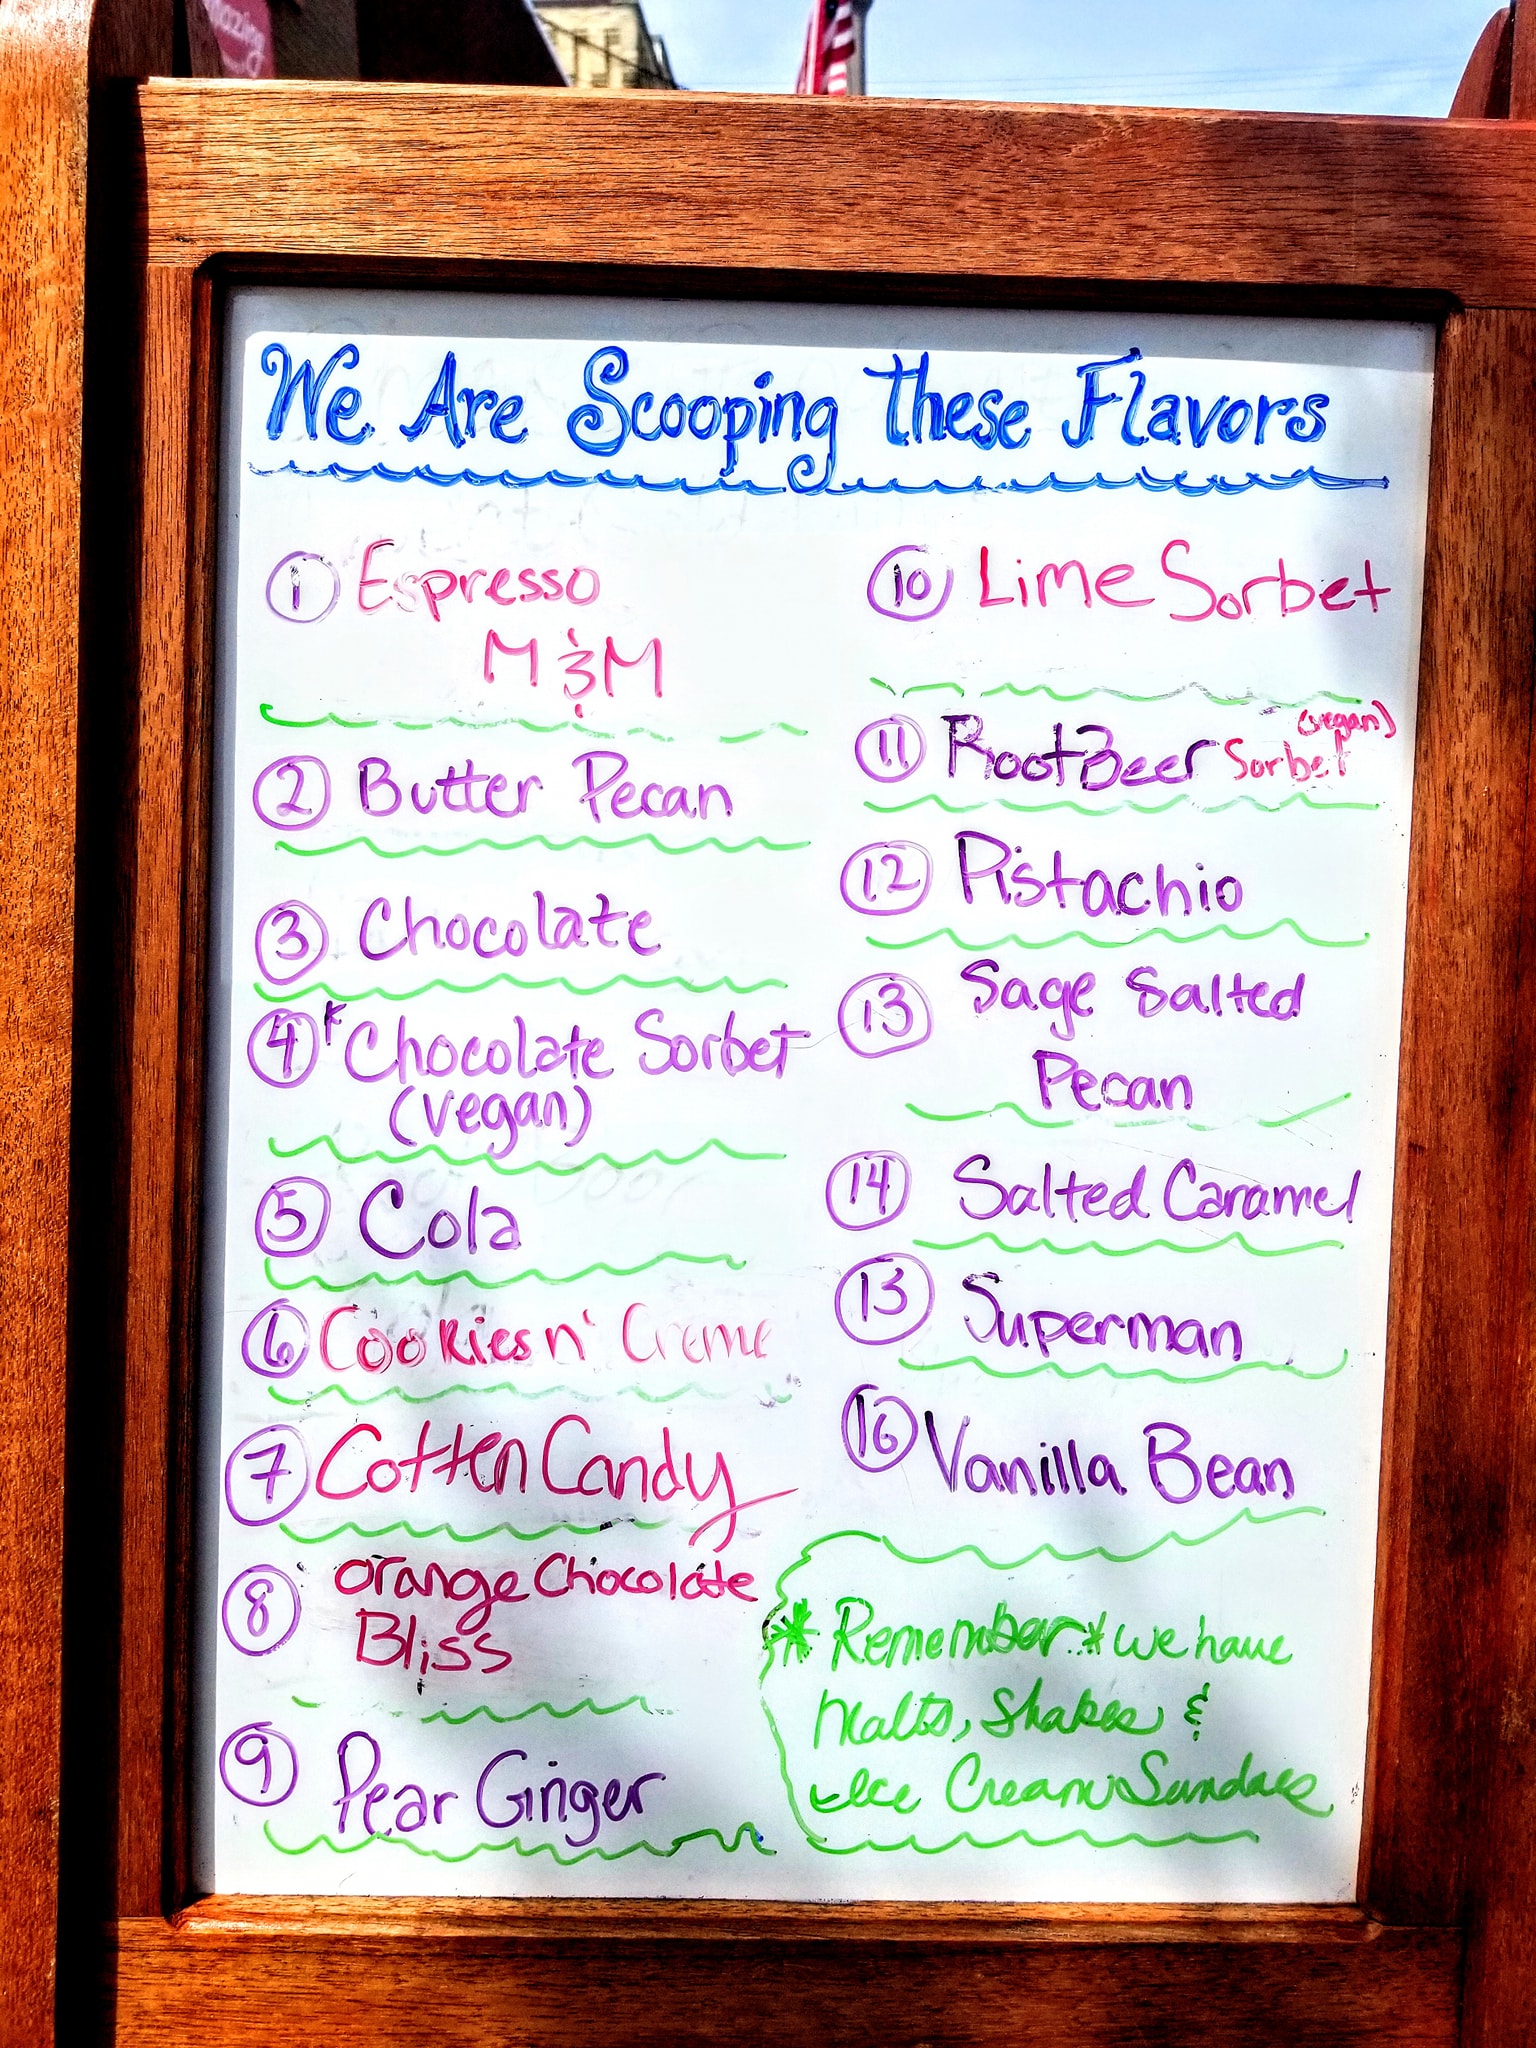 We Are Scooping These Flavors
1 Espresso
M&M
2 Butter Pecan
3 Chocolate
4 * Chocolate Sorbet
(vegan)
5 Cola
6 Cookies n' Creme
7 Cotten Candy
8 Orange Chocolate
Bliss
9 Pear Ginger
10 Lime Sorbet
11 Root Beer Sorbet (vegan)
12 Pistachio
13 Sage Salted
Pecan
14 Salted Caramel
13 Superman
16 Vanilla Bean
* Remember * we have
Malts, Shakes &
Ice Cream Sundaes